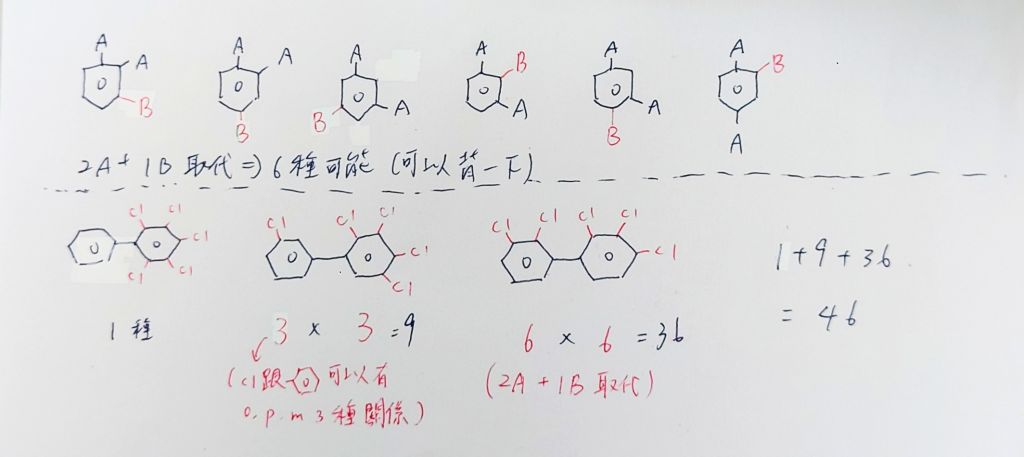 A A B
A A B
A A B
A B A
A A B
A B A
2A + 1B 取代 => 6種可能 (可以背一下)
Cl Cl Cl Cl Cl
Cl Cl Cl Cl Cl
Cl Cl Cl Cl Cl
1種
3 x 3 = 9
(Cl跟 可以有
o. p. m 3種關係)
6 x 6 = 36
(2A + 1B 取代)
1 + 9 + 36
= 46